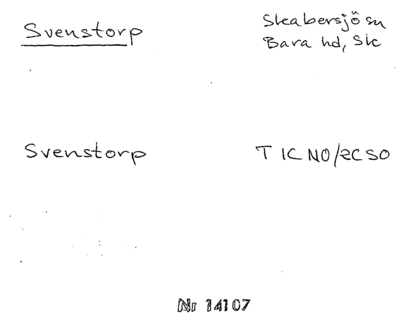 Svenstorp
Skabersjö sn
Bara hd, Sk
Svenstorp
T 1C NO/2C SO
Nr 14107